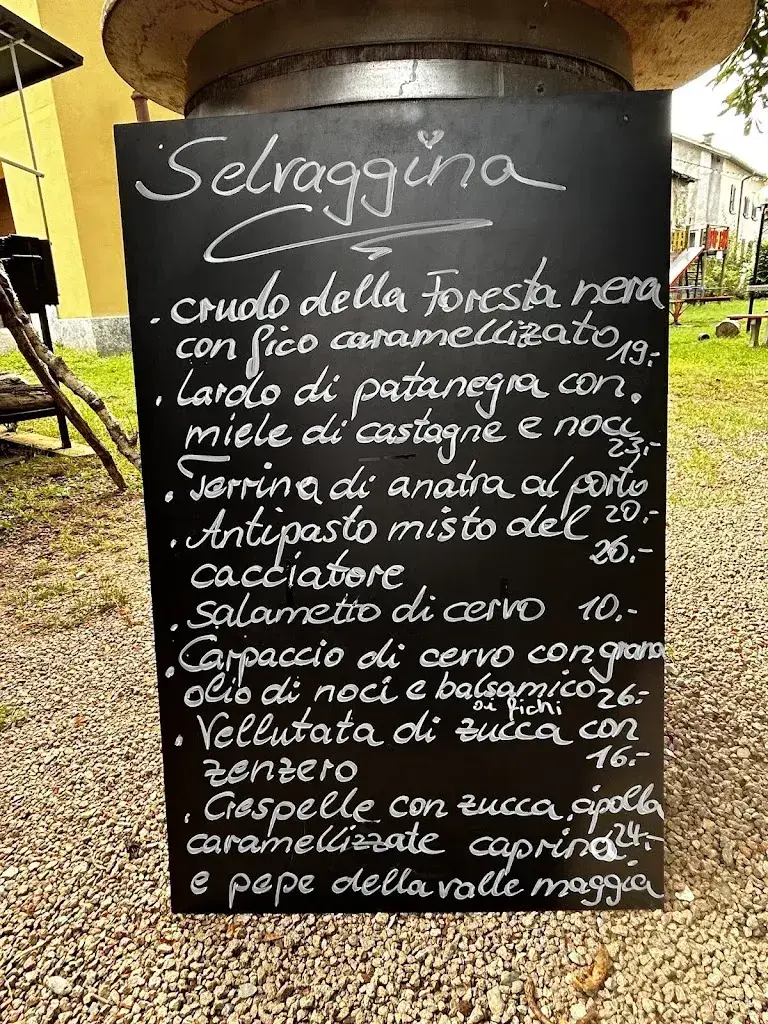 Selvaggina
. crudo della Foresta nera
con fico caramellizzato 19.-
. Lardo di patanegra con
miele di castagne e noci
23.-
. Terrina di anatra al porto
20.-
. Antipasto misto del
cacciatore 26.-
. Salametto di cervo 10.-
. Carpaccio di cervo con grana
olio di noci e balsamico 26.-
di fichi
. Vellutata di zucca con
zenzero 16.-
. Crespelle con zucca, cipolla
caramellizzate caprino 24.-
e pepe della valle maggia